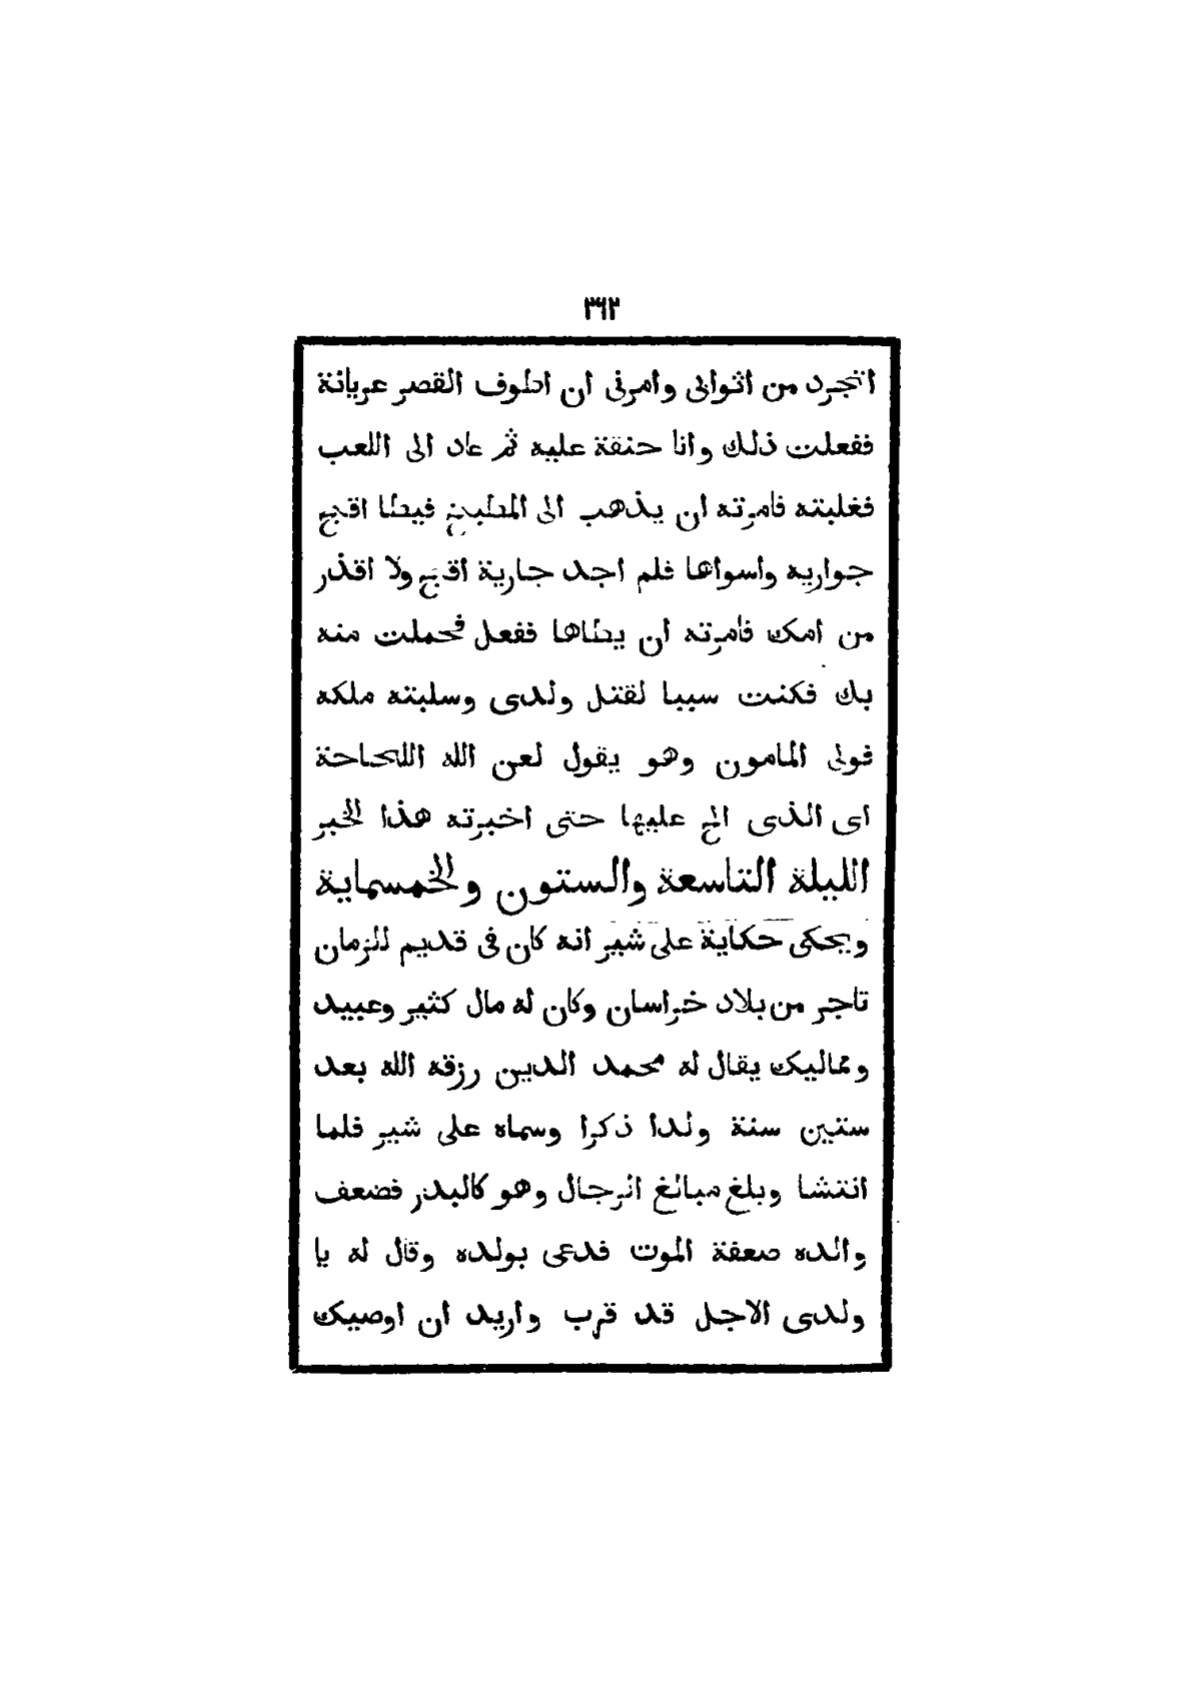 ٣٦٢
اتجرد من اثوابى وامرنى ان اطوف القصر عريانة
ففعلت ذلك وانا حنقة عليه ثم عاد الى اللعب
فغلبته فامرته ان يذهب الى المطبخ فيطا اقبح
جواريه واسواها فلم اجد جارية اقبح ولا اقذر
من امك فامرته ان يطاها ففعل فحملت منه
بك فكنت سببا لقتل ولدى وسلبته ملكه
فولى المامون وهو يقول لعن الله اللحاحة
اى الذى الح عليها حتى اخبرته هذا الخبر
الليلة التاسعة والستون والخمسماية
ويحكى حكاية على شير انه كان فى قديم الزمان
تاجر من بلاد خراسان وكان له مال كثير وعبيد
ومماليك يقال له محمد الدين رزقه الله بعد
ستين سنة ولدا ذكرا وسماه على شير فلما
انتشا وبلغ مبالغ الرجال وهو كالبدر فضعف
والده ضعفة الموت فدعى بولده وقال له يا
ولدى الاجل قد قرب واريد ان اوصيك